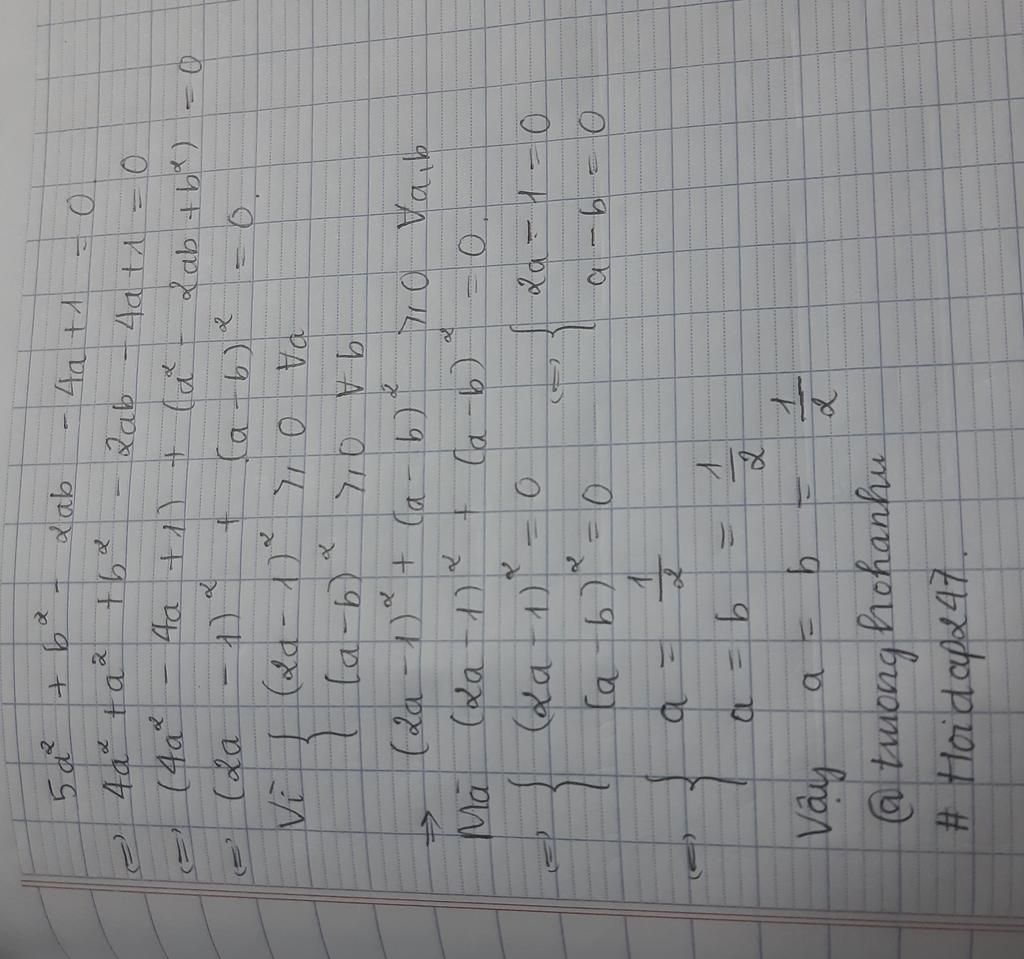 5a² + b² - 2ab - 4a + 1 = 0
⇔ 4a² + a² + b² - 2ab - 4a + 1 = 0
⇔ (4a² - 4a + 1) + (a² - 2ab + b²) = 0
⇔ (2a - 1)² + (a - b)² = 0.
Vì { (2a - 1)² ⩾ 0 ∀a
(a - b)² ⩾ 0 ∀b
⇒ (2a - 1)² + (a - b)² ⩾ 0 ∀a,b
Mà (2a - 1)² + (a - b)² = 0.
⇔ { (2a - 1)² = 0 ⇔ { 2a - 1 = 0
(a - b)² = 0 a - b = 0
⇔ { a = 1/2
a = b = 1/2
Vậy a = b = 1/2
@truonghohanhu
# Hoidap247.